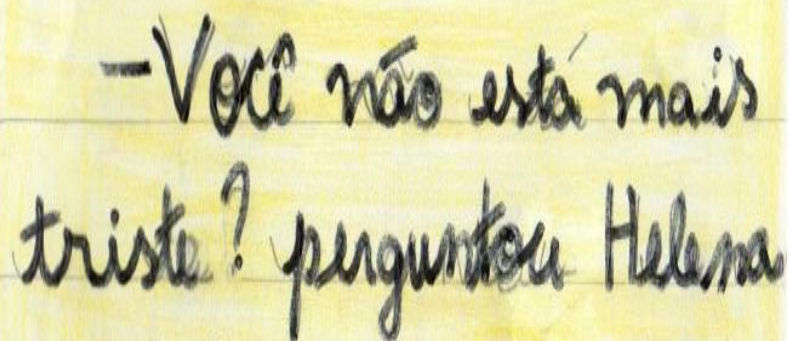 —Você não está mais
triste? perguntou Helena